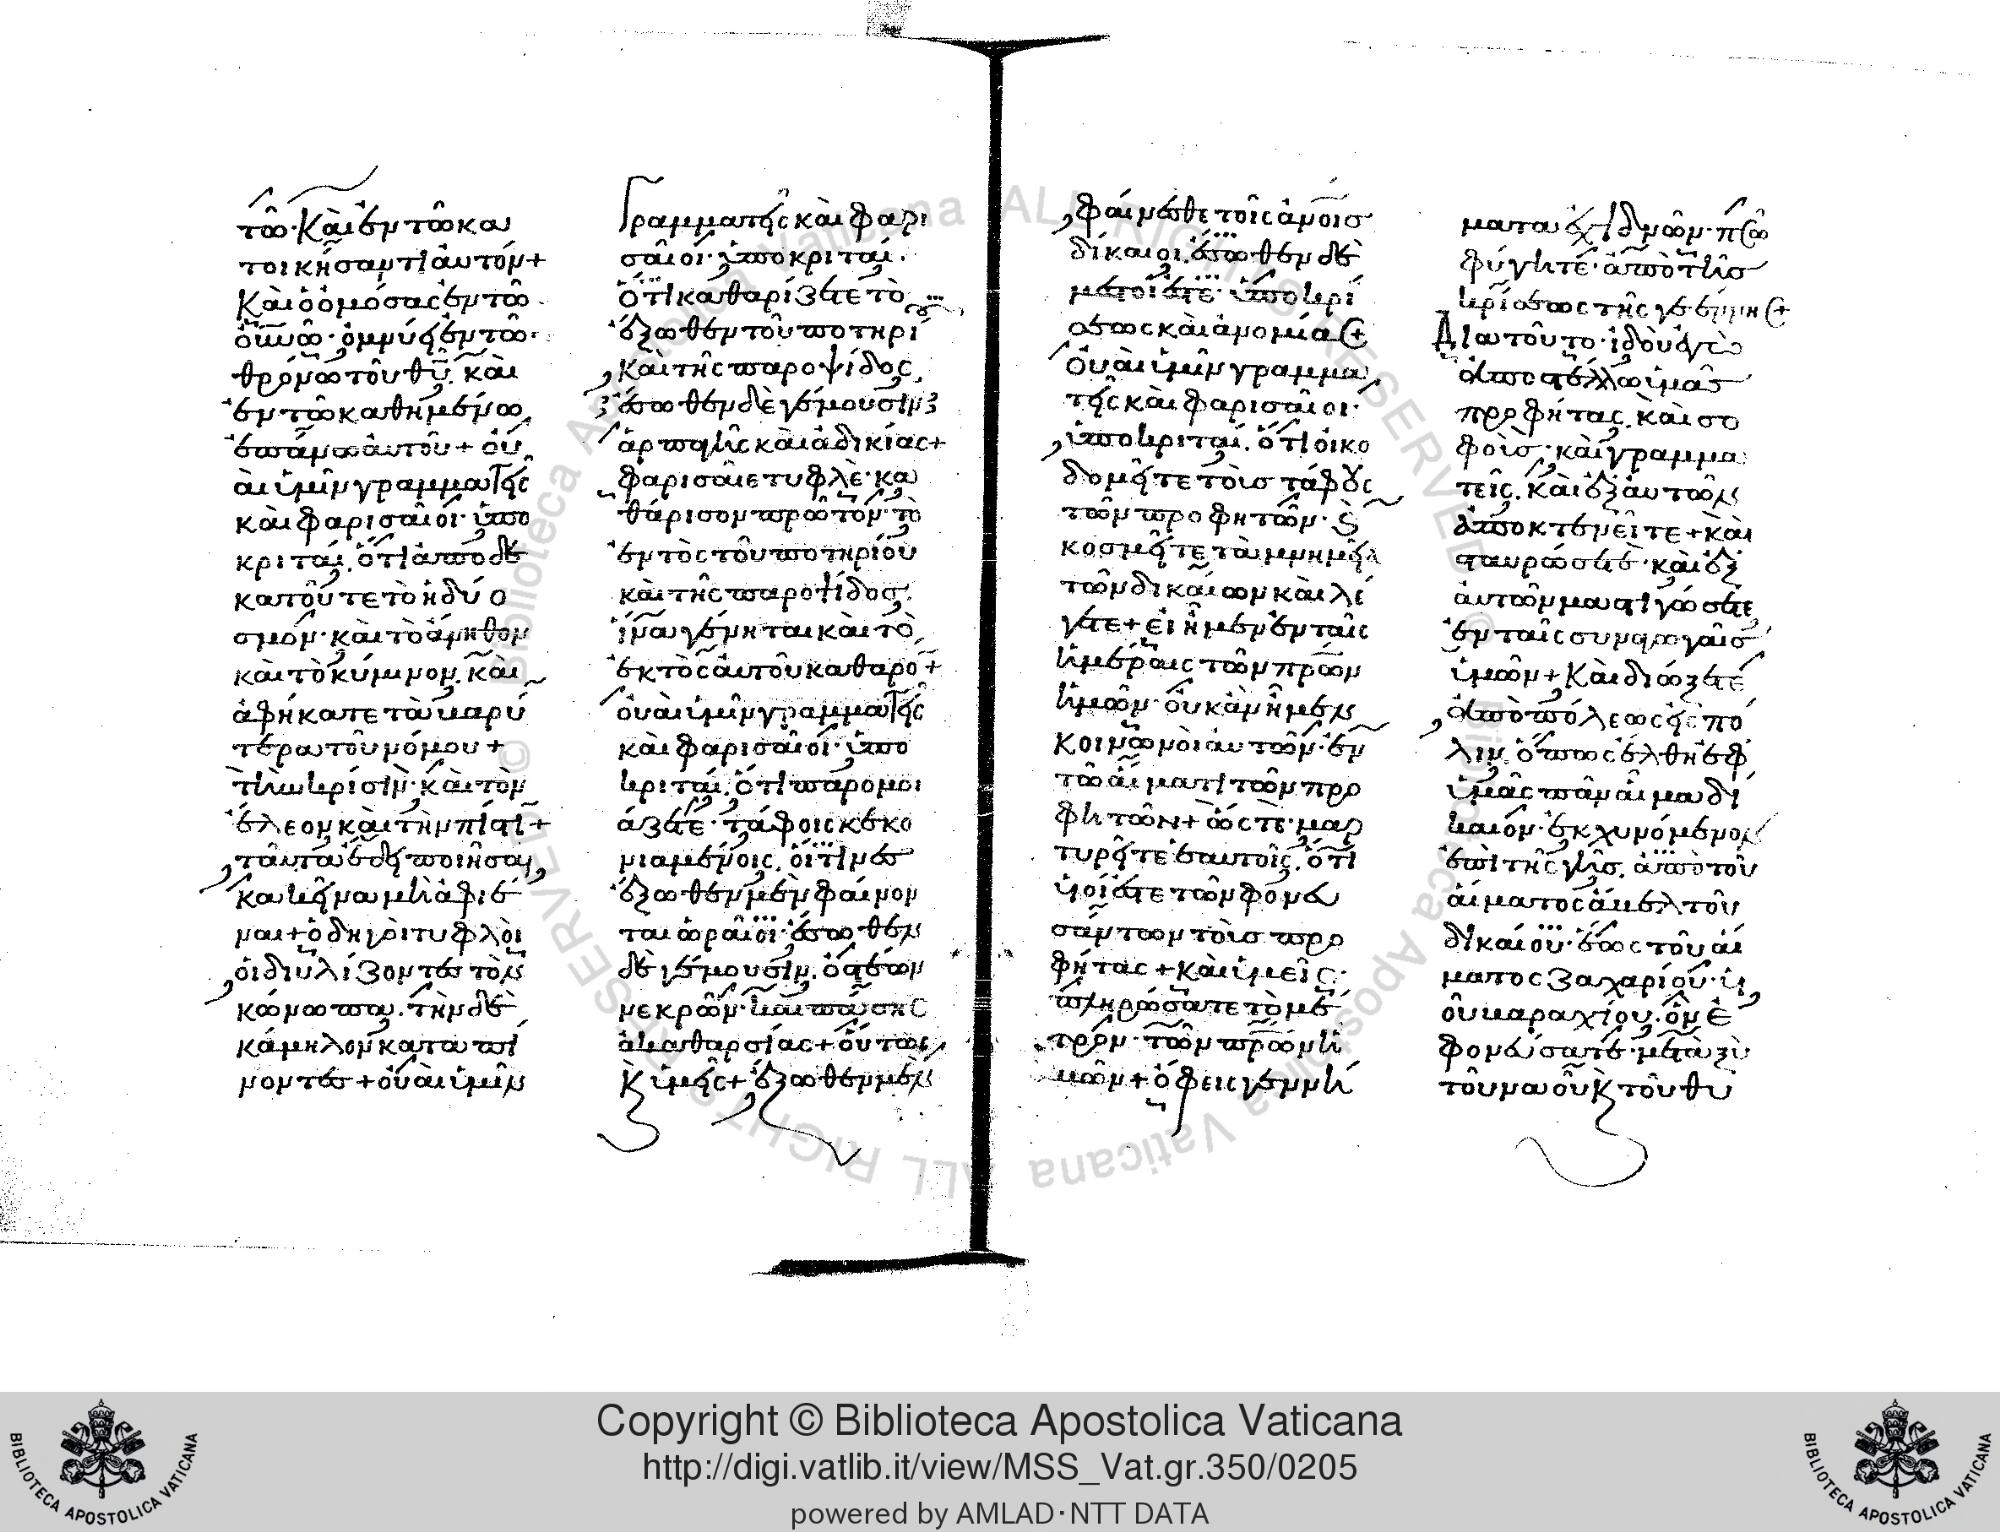 τῶ· Και ἐν τῶ κα
τοικήσαντι ἀυτόν+
Και ὁ ὀμόσας ἐν τῶ
ὀυνῶ· ὀμνύει ἐν τῶ·
θρόνω τοῦ θυ. και
ἐν τῶ καθημένω
ἐπάνω ἀυτοῦ+ ὀυ
ὰι ὑμῖν γραμματεῖς
και φαρισαῖοι· ὑπο
κριταί. ὅτι ἀποδε
κατοῦτε το ἡδύο
σμον· και το ἄνηθον
και το κύμινον. και
ἀφήκατε τα βαρύ
τερα τοῦ νόμου+
την κρίσιν· και τον
ἔλεον και την πίστι+
ταῦτα ἔδει ποιῆσαι,
κακεῖνα μη ἀφιέ
ναι+ ὁδηγοι τυφλοι
ὁι διυλίζοντες τον
κώνωπα. την δε
κάμηλον καταπί
νοντες+ ὀυαι ὑμῖν
Γραμματεῖς και φαρι
σαῖοι· ὑποκριταί.
ὅτι καθαρίζετε το
ἔξωθεν τοῦ ποτηρί
και τῆς παροψίδος,
ἔσωθεν δε γέμουσιν ἐξ
ἁρπαγῆς και ἀδικίας+
φαρισαῖε τυφλε· κα
θάρισον πρῶτον· το
ἐντος τοῦ ποτηρίου
και τῆς παροψίδος.
ἵνα γένηται και το
ἐκτος ἀυτοῦ καθαρό+
ὀυαι ὑμῖν γραμματεῖς
και φαρισαῖοι· ὑπο
κριταί. ὅτι παρομοι
άζετε· τάφοις κεκο
νιαμένοις. ὅιτινες
ἔξωθεν μεν φαίνον
ται ὡραῖοι· ἔσωθεν
δε γέμουσιν. ὀστέων
νεκρῶν· και πάσης
ἀκαθαρσίας+ ὅυτως
κ ὑμεῖς+ ἔξωθεν μεν
φαίνεσθε τοῖς ἀνοις
δίκαιοι. ἔσωθεν δε
μεστοί ἐστε· ὑποκρί
σεως και ἀνομίας+
ὀυαι ὑμῖν γραμμα
τεῖς και φαρισαῖοι·
ὑποκριταί. ὅτι ὀικο
δομεῖτε τοις τάφους
τῶν προφητῶν· κ
κοσμεῖτε τα μνημεῖα
τῶν δικαίων και λέ
γετε+ ει ἦμεν ἐν ταῖς
ἡμέραις τῶν πρων
ἡμῶν· ὀυκ ἂν ἦμεν
κοινωνοι ἀυτῶν· ἐν
τῶ αἵματι τῶν προ
φητῶν+ ὥστε· μαρ
τυρεῖτε ἑαυτοῖς. ὅτι
ὑοί ἐστε τῶν φονευ
σάντων τοις προ
φήτας+ και ὑμεῖς·
πληρώσατε το μέ
τρον· τῶν πρων ἡ
μῶν+ ὄφεις γεννή
ματα ἐχιδνῶν· πῶς
φύγητε· ἀπο τῆς
κρίσεως τῆς γεέννης+
Δια τοῦτο· ἰδου ἐγω
ἀποστέλλω ὑμᾶς
προφήτας. και σο
φοις· και γραμμα
τεῖς. και ἐξ ἀυτῶν
ἀποκτενεῖτε+ και
σταυρώσετε· και ἐξ
ἀυτῶν μαστιγώσετε
ἐν ταῖς συναγωγαῖς
ὑμῶν+ Και διώξετε
ἀπο πόλεως εἰς πό
λιν. ὅπως ἔλθη ἐφ
ὑμᾶς πᾶν αἷμα δί
καιον· ἐκχυνόμενον
ἐπι τῆς γῆς. ἀπο τοῦ
αἵματος ἄβελ τοῦ
δικαίου· ἕως τοῦ αἵ
ματος ζαχαρίου· ὑι
οῦ βαραχίου. ὃν ἐ
φονεύσατε· μεταξυ
τοῦ ναοῦ κ τοῦ θυ
Copyright © Biblioteca Apostolica Vaticana
http://digi.vatlib.it/view/MSS_Vat.gr.350/0205
powered by AMLAD·NTT DATA
BIBLIOTECA APOSTOLICA VATICANA
BIBLIOTECA APOSTOLICA VATICANA